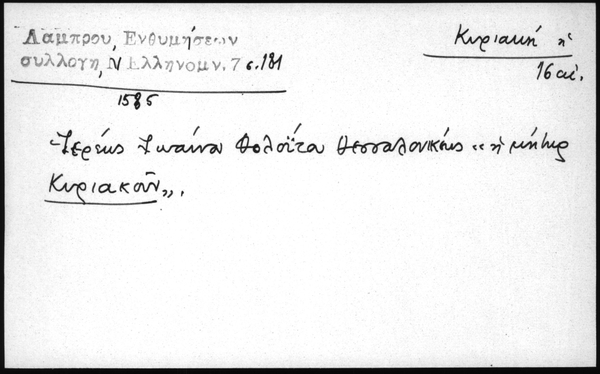 Λαμπρου, Ενθυμήσεων
συλλογη, Ν Ελληνομν. 7 σ. 181
Κυριακή ἡ
16 αἰ.
1585
Ἱερέως Ἰωάννου Θεσσαλονίκης «ἡ μήτηρ
Κυριακοῦ».